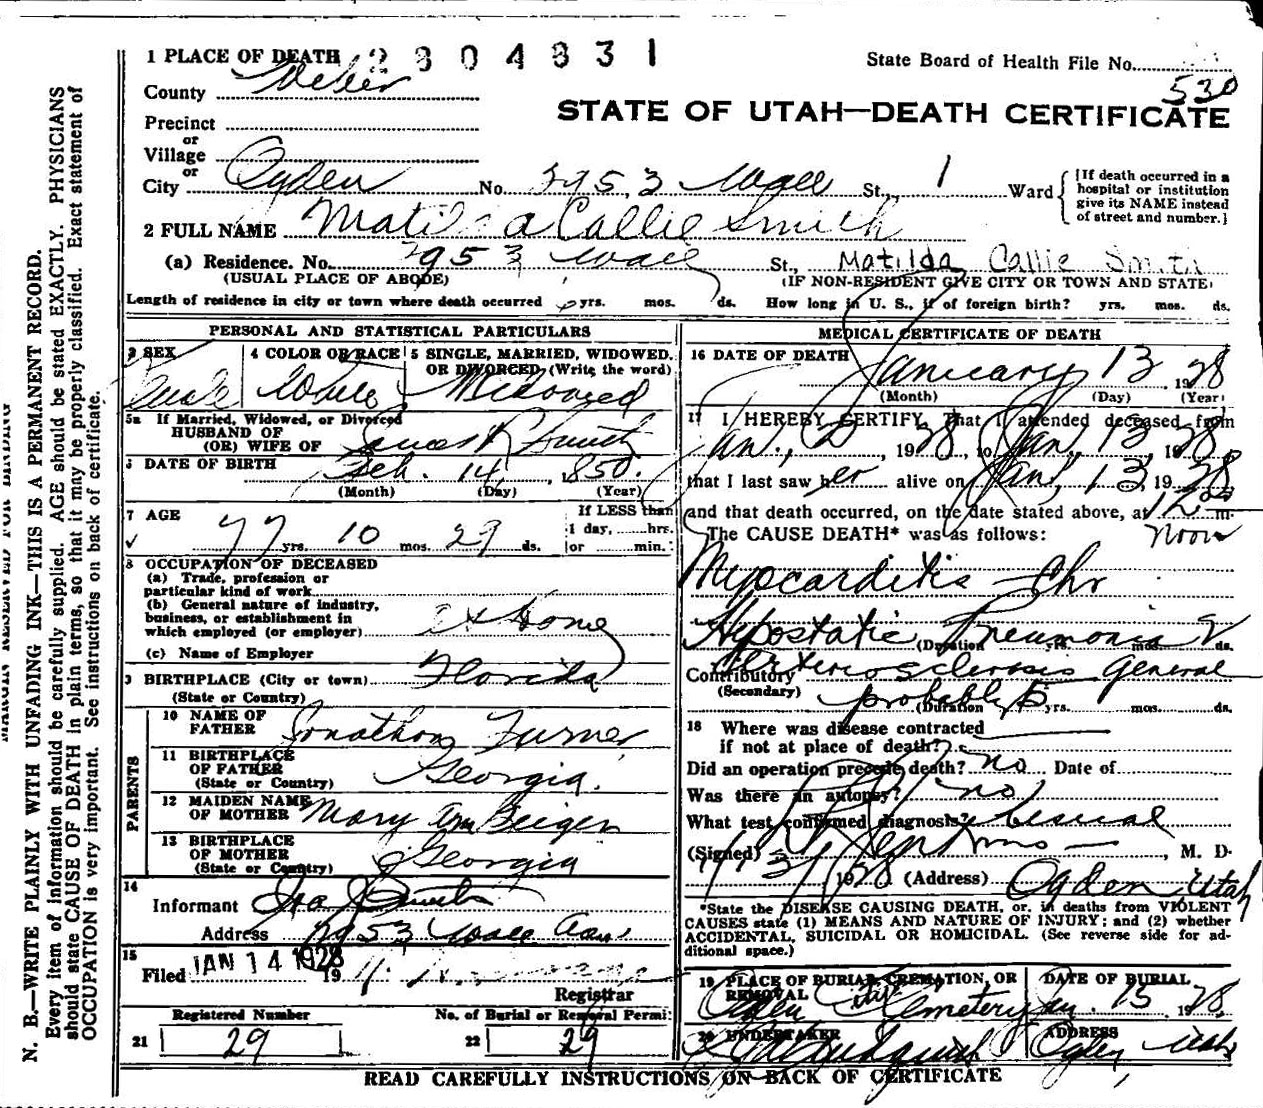 1 PLACE OF DEATH 2804831
State Board of Health File No. 530
County Weber
STATE OF UTAH—DEATH CERTIFICATE
Precinct
or
Village
or
City Ogden No. 2953 Wall St., 1 Ward
[If death occurred in a hospital or institution give its NAME instead of street and number.]
2 FULL NAME Matilda Callie Smith
(a) Residence. No. 2953 Wall St., Matilda Callie Smith
(USUAL PLACE OF ABODE) (IF NON-RESIDENT GIVE CITY OR TOWN AND STATE)
Length of residence in city or town where death occurred yrs. mos. ds. How long in U. S., if of foreign birth? yrs. mos. ds.
PERSONAL AND STATISTICAL PARTICULARS
3 SEX 4 COLOR OR RACE 5 SINGLE, MARRIED, WIDOWED. OR DIVORCED (Write the word)
Female White Widowed
5a If Married, Widowed, or Divorced
HUSBAND OF
(OR) WIFE OF R Smith
6 DATE OF BIRTH Feb. 14, 1850.
(Month) (Day) (Year)
7 AGE 77 yrs. 10 mos. 29 ds.
If LESS than 1 day, hrs. or min.
8 OCCUPATION OF DECEASED
(a) Trade, profession or
particular kind of work
(b) General nature of industry,
business, or establishment in
which employed (or employer) At Home
(c) Name of Employer
9 BIRTHPLACE (City or town) Florida
(State or Country)
PARENTS
10 NAME OF
FATHER Jonathan Turner
11 BIRTHPLACE
OF FATHER Georgia.
(State or Country)
12 MAIDEN NAME
OF MOTHER Mary Ann
13 BIRTHPLACE
OF MOTHER Georgia
(State or Country)
14
Informant Ira J Smith
Address 2953 Wall Ave
15
Filed JAN 14 1928 19
Registrar
Registered Number No. of Burial or Removal Permit
21 29 22 29
MEDICAL CERTIFICATE OF DEATH
16 DATE OF DEATH January 13, 1928
(Month) (Day) (Year)
17 I HEREBY CERTIFY, That I attended deceased from
Jan., 1928, to Jan. 13, 1928
that I last saw her alive on Jan. 13, 1928
and that death occurred, on the date stated above, at 12 m.
The CAUSE DEATH* was as follows: Noon
Myocarditis - Chr
Hypostatic Pneumonia
(Duration yrs. mos. ds.
Contributory Arteriosclerosis General
(Secondary) probably 5
(Duration yrs. mos. ds.
18 Where was disease contracted
if not at place of death?
Did an operation precede death? no Date of
Was there an autopsy? no
What test confirmed diagnosis? usual
(Signed) , M. D.
1928 (Address) Ogden, Utah
*State the DISEASE CAUSING DEATH, or, in deaths from VIOLENT
CAUSES state (1) MEANS AND NATURE OF INJURY; and (2) whether
ACCIDENTAL, SUICIDAL OR HOMICIDAL. (See reverse side for ad-
ditional space.)
19 PLACE OF BURIAL, CREMATION, OR REMOVAL DATE OF BURIAL
Ogden City Cemetery Jan. 15 1928
20 UNDERTAKER ADDRESS
Lindquist Ogden, Utah
READ CAREFULLY INSTRUCTIONS ON BACK OF CERTIFICATE
MARGIN RESERVED FOR BINDING
N. B.—WRITE PLAINLY WITH UNFADING INK—THIS IS A PERMANENT RECORD.
Every item of information should be carefully supplied. AGE should be stated EXACTLY. PHYSICIANS
should state CAUSE OF DEATH in plain terms, so that it may be properly classified. Exact statement of
OCCUPATION is very important. See instructions on back of certificate.